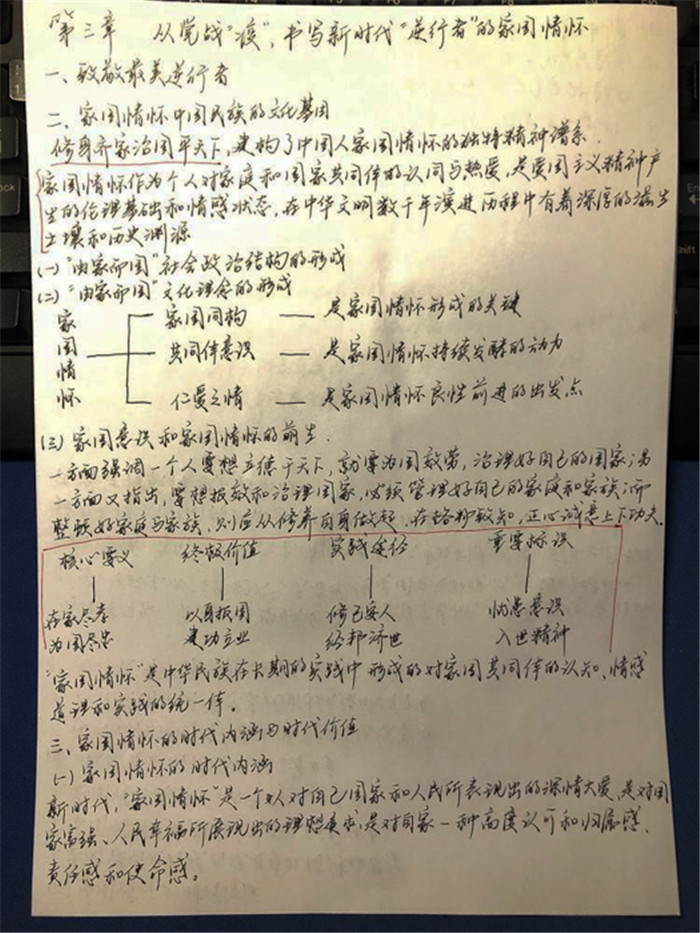 第三章 从党战“疫”，书写新时代“逆行者”的家国情怀
一、致敬最美逆行者
二、家国情怀中国民族的文化基因
修身齐家治国平天下，建构了中国人家国情怀的独特精神谱系．
家国情怀作为个人对家庭和国家共同体的认同与热爱，是爱国主义精神产
生的伦理基础和情感状态，在中华文明数千年演进历程中有着深厚的滋生
土壤和历史渊源
(一)“由家而国”社会政治结构的形成
(二)“由家而国”文化理念的形成
家国情怀
家国同构 — 是家国情怀形成的关键
共同体意识 — 是家国情怀持续发酵的动力
仁爱之情 — 是家国情怀良性前进的出发点
(三) 家国意识和家国情怀的萌生．
一方面强调一个人要想立德于天下，就要为国效劳，治理好自己的国家；另
一方面又指出，要想报效和治理国家，必须管理好自己的家庭和家族；而
整顿好家庭与家族，则应从修养自身做起，在格物致知，正心诚意上下功夫．
核心要义 终极价值 实践途径 重要标识
在家尽孝 以身报国 修己安人 忧患意识
为国尽忠 建功立业 经邦济世 入世精神
“家国情怀”是中华民族在长期的实践中形成的对家国共同体的认知、情感
道理和实践的统一体。
三、家国情怀的时代内涵与时代价值
(一) 家国情怀的时代内涵
新时代，“家国情怀”是一个人对自己国家和人民所表现出的深情大爱，是对国
家富强、人民幸福所展现出的理想追求，是对自家一种高度认可和归属感、
责任感和使命感。